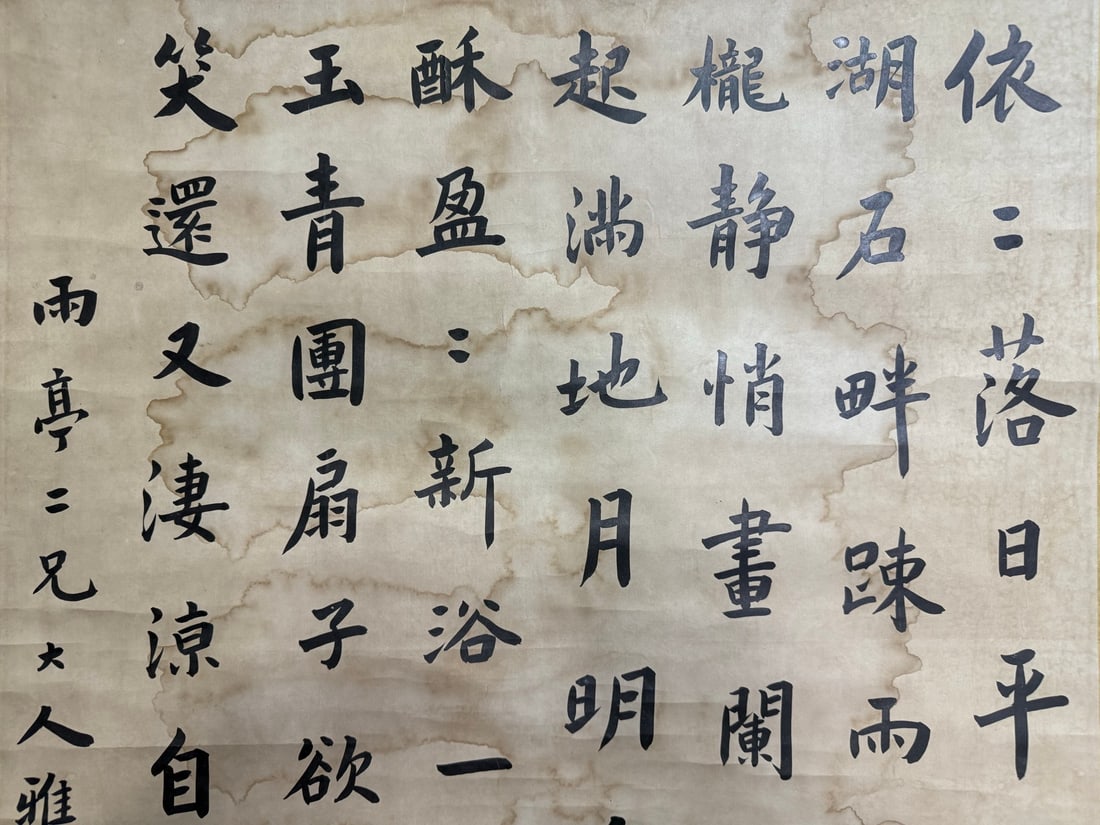 依〻落日平
湖石畔踈雨
櫳静悄畫闌
起满地月明
酥盈〻新浴一
玉青團扇子欲
笑還又淒涼自
雨亭二兄大人雅